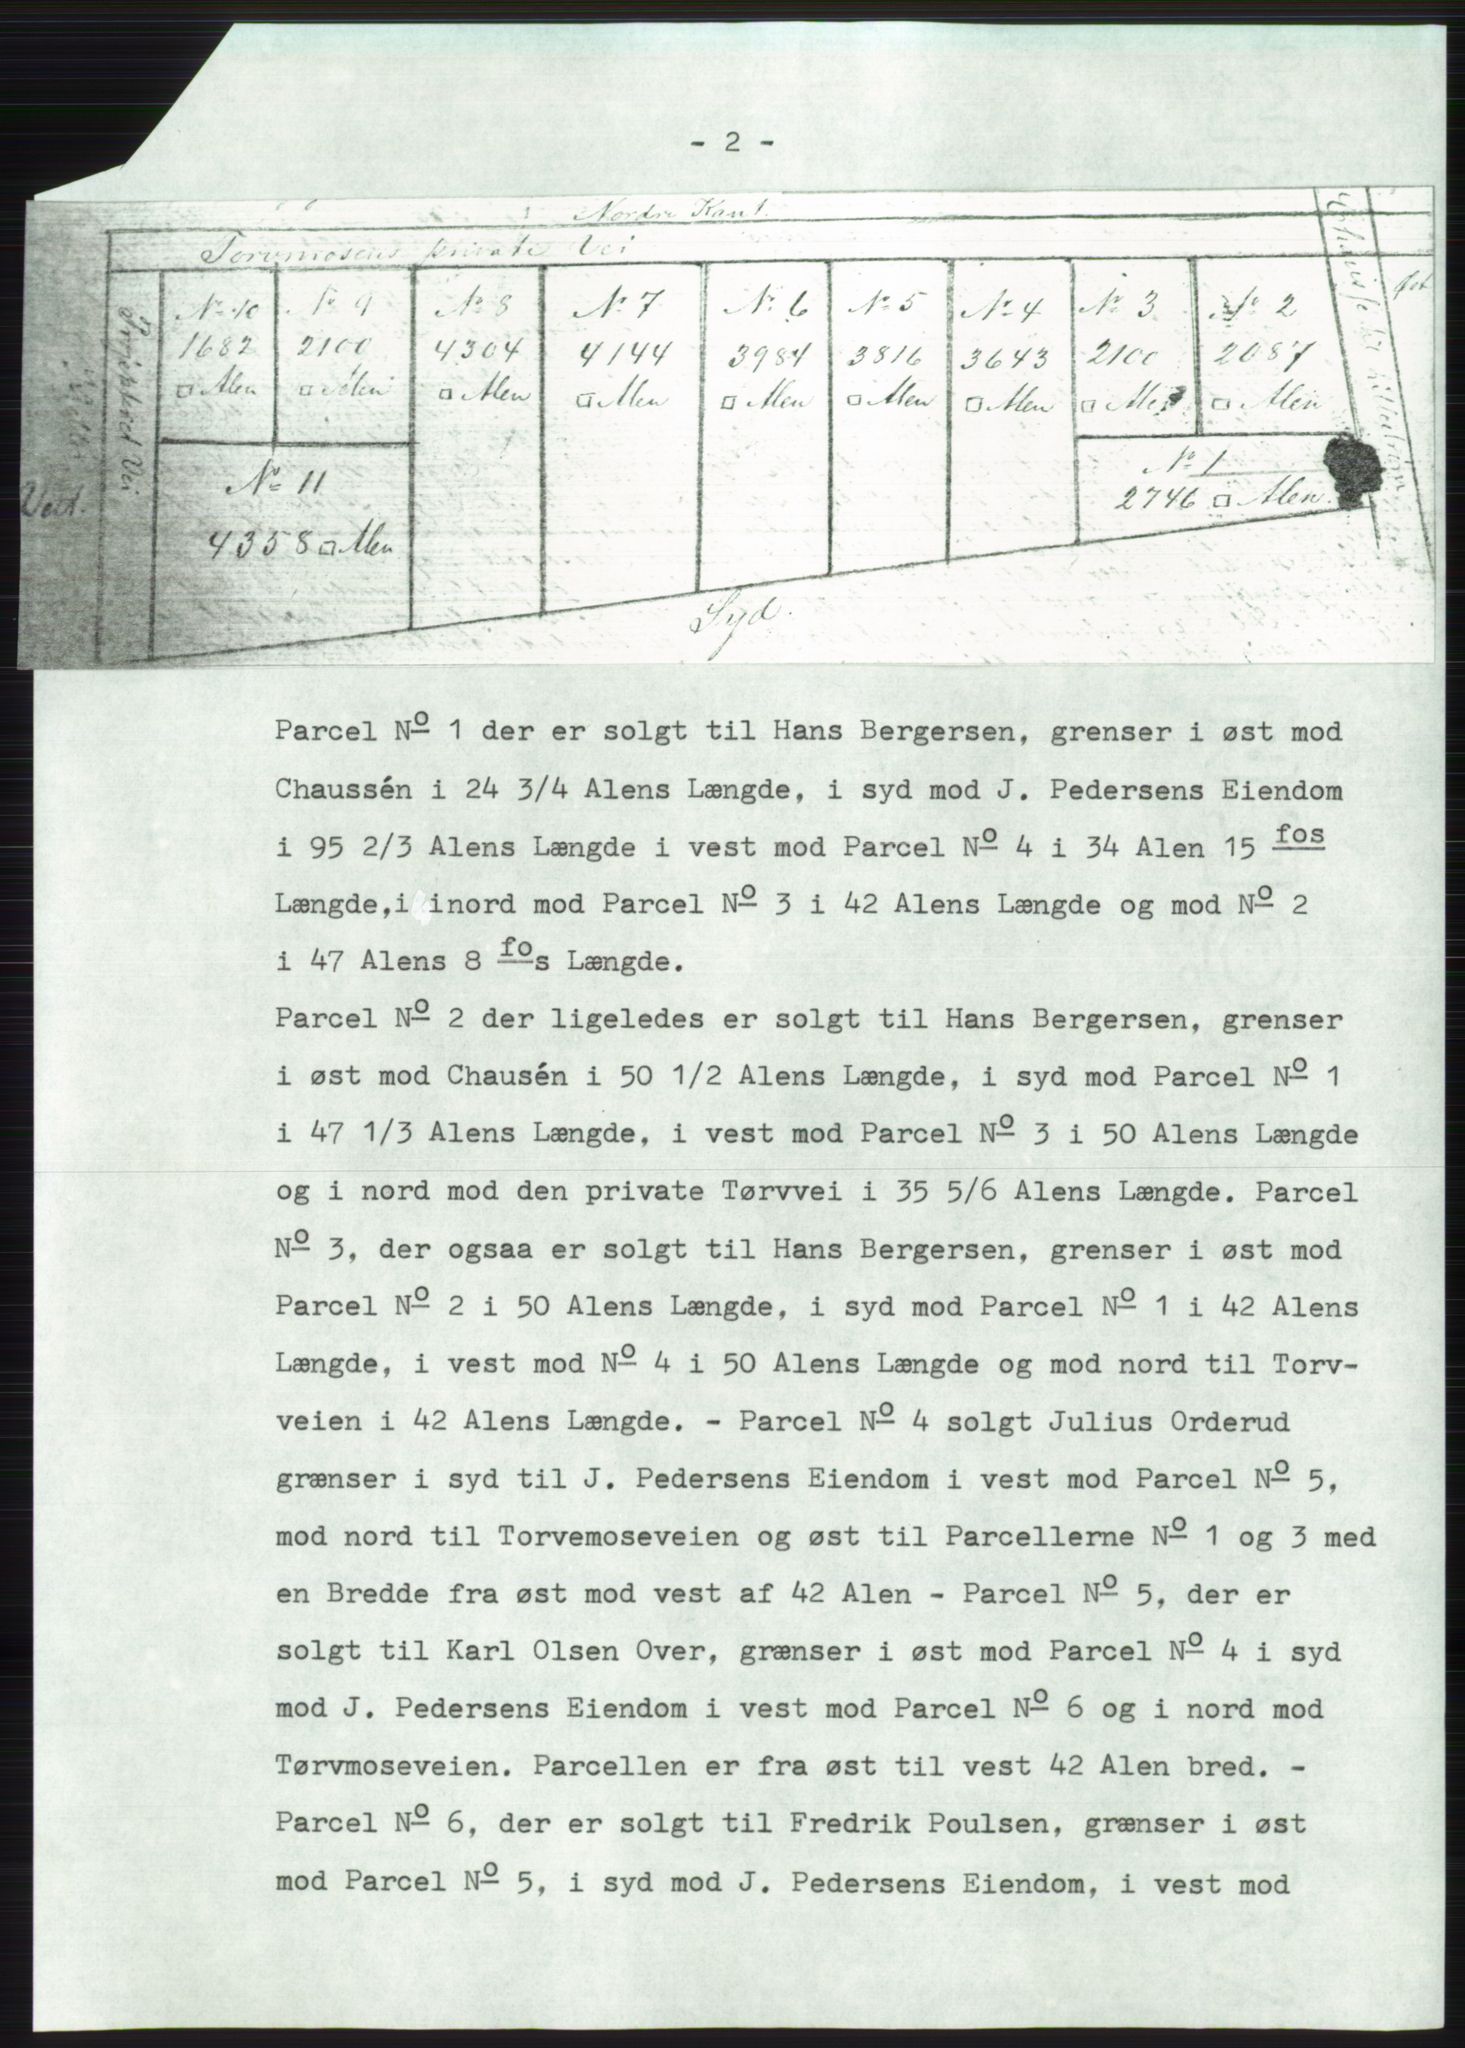 - 2 -
Nordre Kant.
Torvmosens private Vei
No 10
1682
□ Alen
No 9
2100
□ Alen
No 8
4304
□ Alen
No 7
4144
□ Alen
No 6
3984
□ Alen
No 5
3816
□ Alen
No 4
3643
□ Alen
No 3
2100
□ Alen
No 2
2087
□ Alen
Øst
Projekted Vei
Vest.
No 11
4358 □ Alen
No 1
2746 □ Alen.
Syd.
Parcel No 1 der er solgt til Hans Bergersen, grenser i øst mod
Chaussén i 24 3/4 Alens Længde, i syd mod J. Pedersens Eiendom
i 95 2/3 Alens Længde i vest mod Parcel No 4 i 34 Alen 15 fos
Længde,i inord mod Parcel No 3 i 42 Alens Længde og mod No 2
i 47 Alens 8 fos Længde.
Parcel No 2 der ligeledes er solgt til Hans Bergersen, grenser
i øst mod Chausén i 50 1/2 Alens Længde, i syd mod Parcel No 1
i 47 1/3 Alens Længde, i vest mod Parcel No 3 i 50 Alens Længde
og i nord mod den private Tørvvei i 35 5/6 Alens Længde. Parcel
No 3, der ogsaa er solgt til Hans Bergersen, grenser i øst mod
Parcel No 2 i 50 Alens Længde, i syd mod Parcel No 1 i 42 Alens
Længde, i vest mod No 4 i 50 Alens Længde og mod nord til Torv-
veien i 42 Alens Længde. - Parcel No 4 solgt Julius Orderud
grænser i syd til J. Pedersens Eiendom i vest mod Parcel No 5,
mod nord til Torvemoseveien og øst til Parcellerne No 1 og 3 med
en Bredde fra øst mod vest af 42 Alen - Parcel No 5, der er
solgt til Karl Olsen Over, grænser i øst mod Parcel No 4 i syd
mod J. Pedersens Eiendom i vest mod Parcel No 6 og i nord mod
Tørvmoseveien. Parcellen er fra øst til vest 42 Alen bred. -
Parcel No 6, der er solgt til Fredrik Poulsen, grænser i øst
mod Parcel No 5, i syd mod J. Pedersens Eiendom, i vest mod